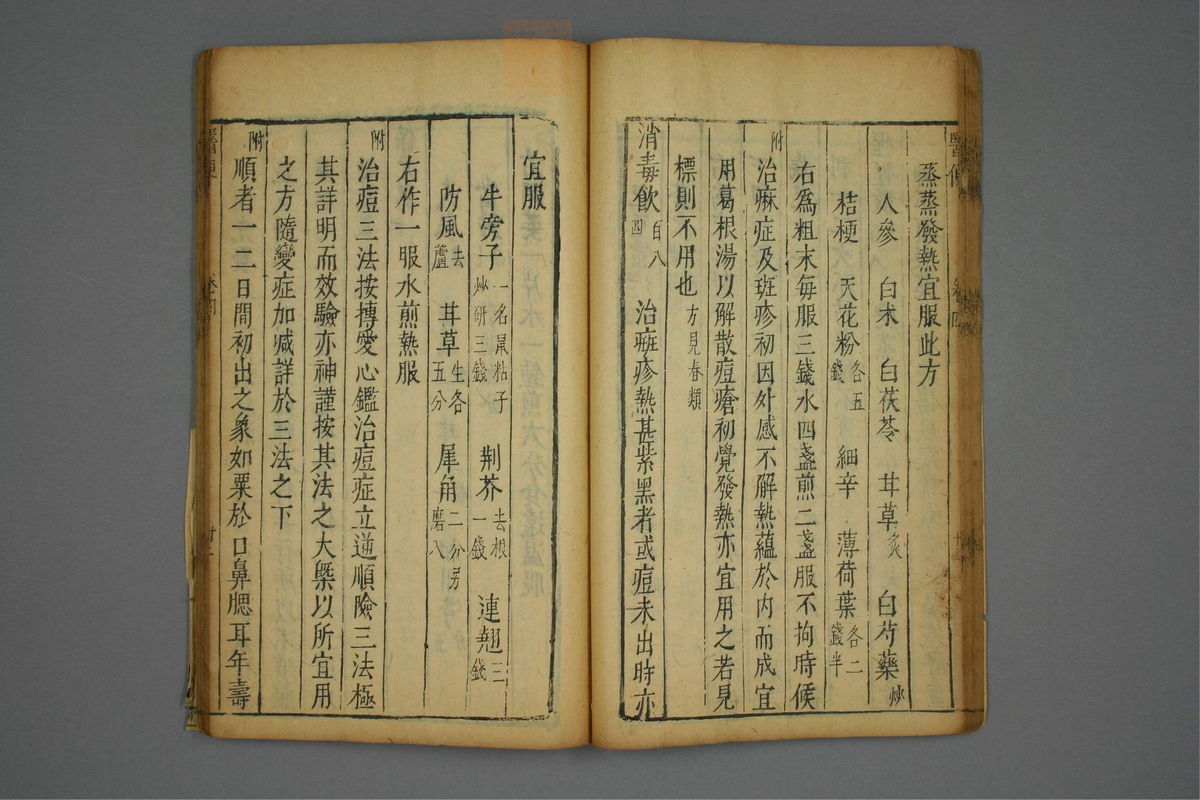 蒸蒸發熱宜服此方
人參 白术 白茯苓 甘草炙 白芍藥炒
桔梗 天花粉各五錢 細辛 薄荷葉各二錢半
右爲粗末每服三錢水四盞煎二盞服不拘時候
附治痳症及斑疹初因外感不解熱蘊於内而成宜
用葛根湯以解散痘瘡初覺發熱亦宜用之若見
標則不用也方見春類
消毒飲百八四 治痘疹熱甚紫黑者或痘未出時亦
宜服
牛旁子一名鼠粘子炒研三錢 荆芥去根一錢 連翹三錢
防風去蘆 甘草生各五分 犀角二分另磨入
右作一服水煎熱服
附治痘三法按摶愛心鑑治痘症立逆順險三法極
其詳明而效驗亦神謹按其法之大槩以所宜用
之方隨變症加減詳於三法之下
附順者一二日間初出之象如粟於口鼻腮耳年壽
醫便
卷四